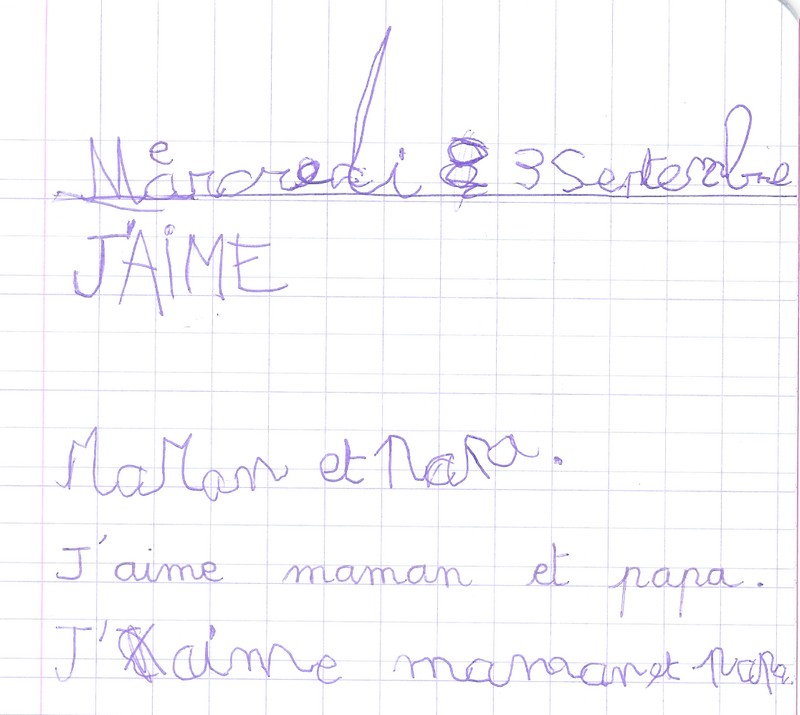 Mercredi 3 Septembre
J'AiME
MaMan et PaPa.
J'aime maman et papa.
J'aime maman et papa.